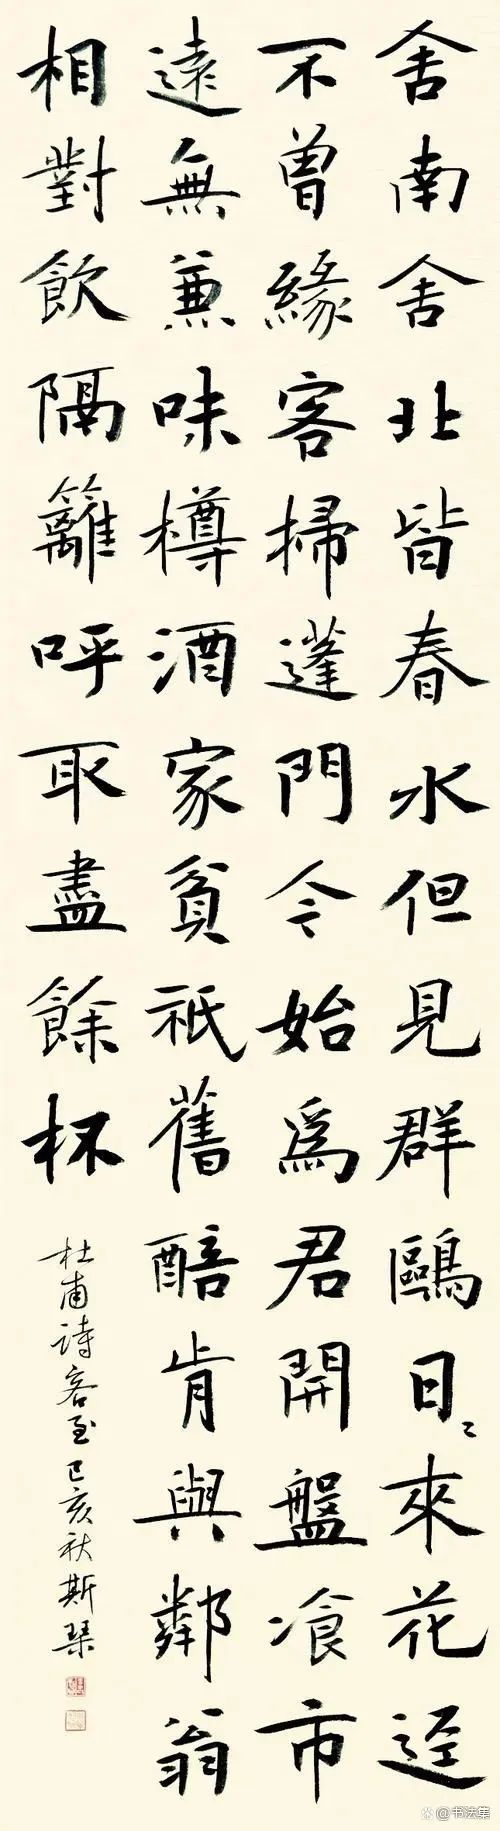 舍南舍北皆春水但見群鷗日〻來花逕
不曾緣客掃蓬門今始為君開盤飡市
遠無兼味樽酒家貧祇舊醅肯與鄰翁
相對飲隔籬呼取盡餘杯
杜甫詩客至己亥秋斯琴
@书法集